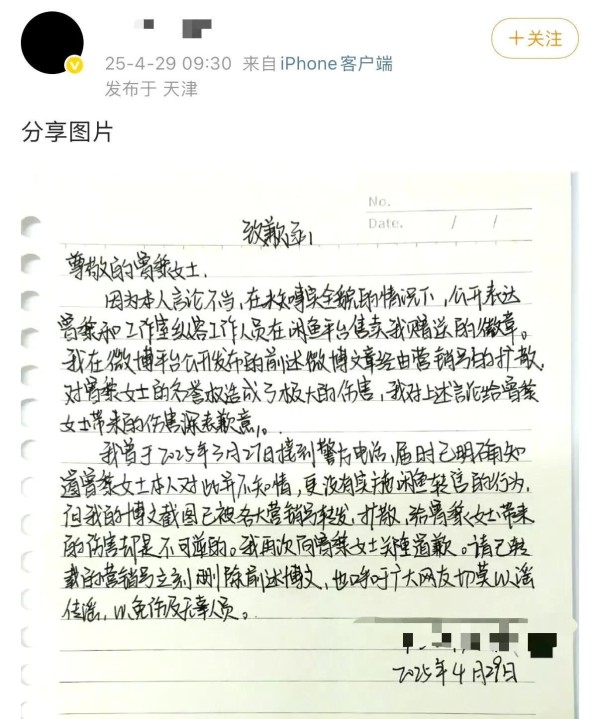 +关注
25-4-29 09:30 来自iPhone客户端
发布于 天津
分享图片
No.
Date. / /
致歉函
尊敬的曾黎女士,
因为本人言论不当,在未知事实全貌的情况下,公开表达
曾黎和工作室纵容工作人员在闲鱼平台售卖我赠送的徽章。
我在微博平台公开发布的前述微博文章经由营销号的扩散,
对曾黎女士的名誉权造成了极大的伤害,我对上述言论给曾黎
女士带来的伤害深表歉意。
我曾于2025年3月27日接到警方电话,届时已明确知
道曾黎女士本人对此并不知情,更没有实施闲鱼转售的行为,
但我的博文截图已被各大营销号转发、扩散,给曾黎女士带来
的伤害却是不可逆的。我再次向曾黎女士道歉。请已转
载的营销号立刻删除前述博文,也呼吁广大网友切莫以谣
传谣,以免伤及无辜人员。
2025年4月29日